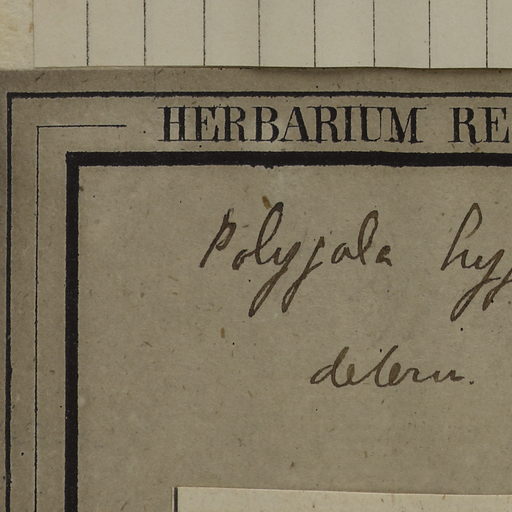 HERBARIUM RE
Polygala hyg
determ.